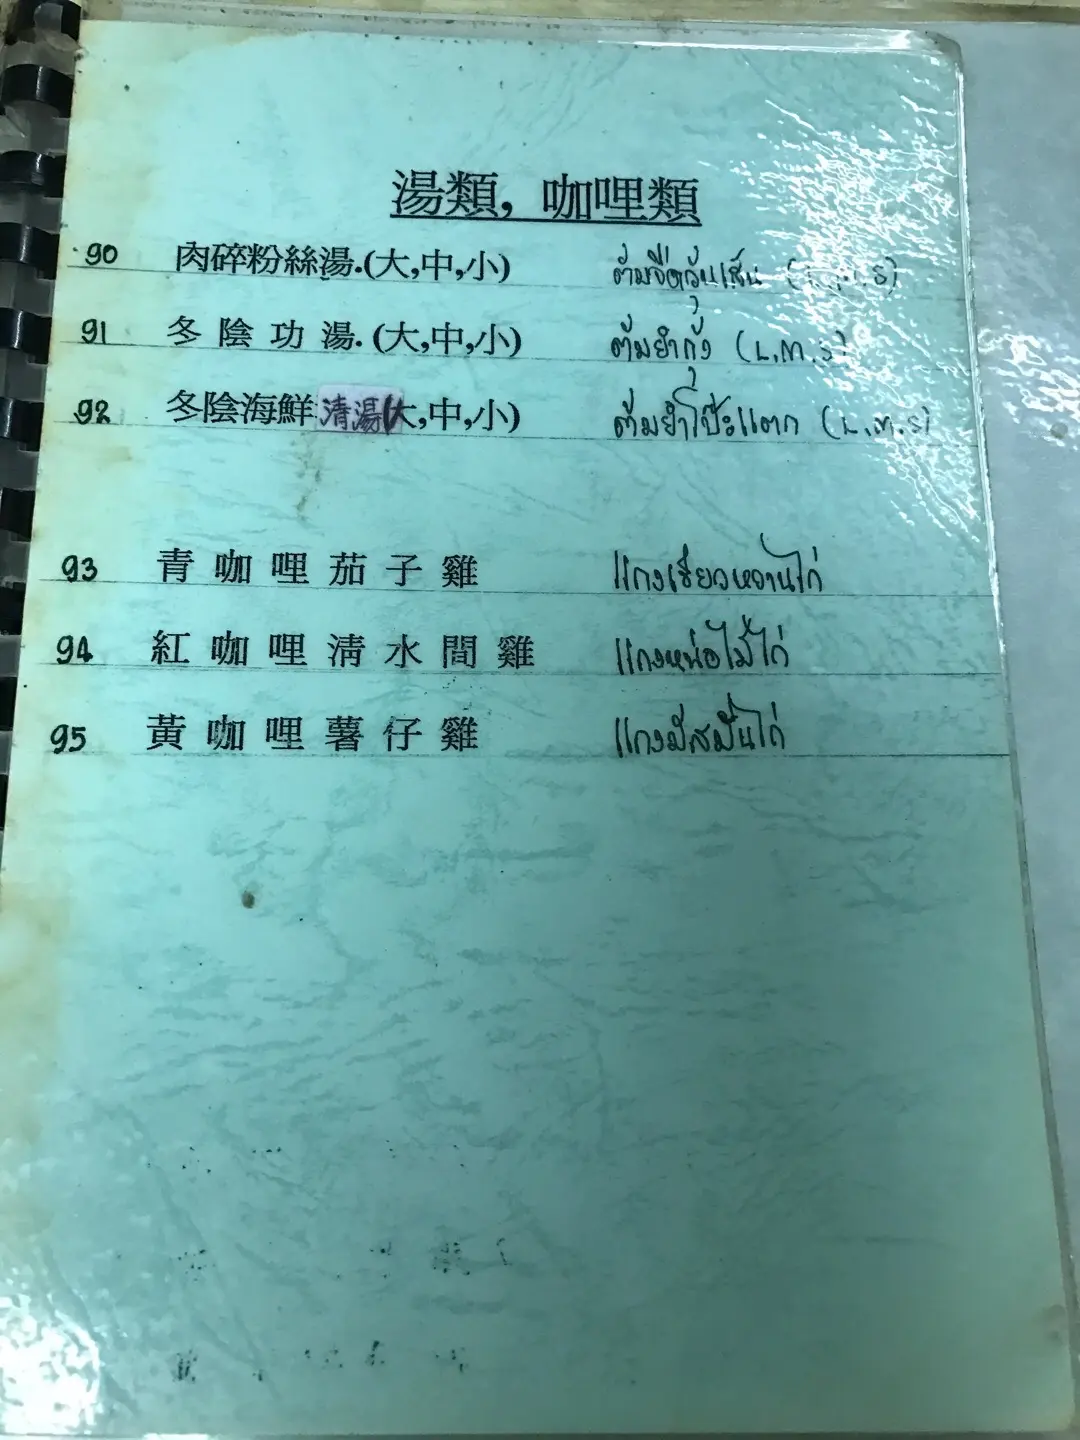 湯類, 咖哩類
90 肉碎粉絲湯.(大,中,小) ต้มจืดวุ้นเส้น (L.M.S)
91 冬陰功湯.(大,中,小) ต้มยำกุ้ง (L.M.S)
92 冬陰海鮮清湯(大,中,小) ต้มยำโป๊ะแตก (L.M.S)
93 青咖哩茄子雞 แกงเขียวหวานไก่
94 紅咖哩清水間雞 แกงหน่อไม้ไก่
95 黃咖哩薯仔雞 แกงมัสมั่นไก่